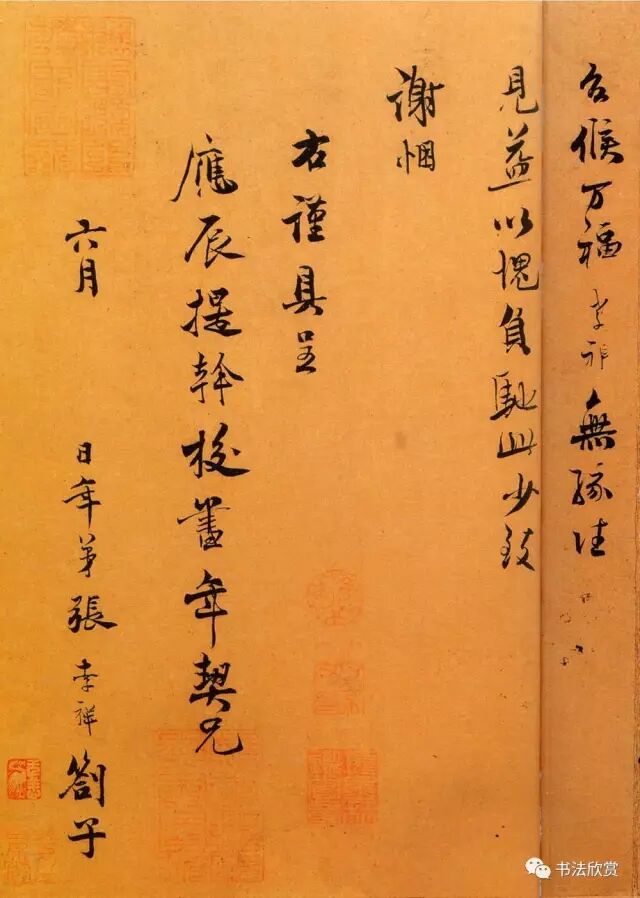 台候万福孝祥無缘往
見益以愧負馳此少致
謝悃
右謹具呈
應辰提幹校書年契兄
六月 日年弟張孝祥劄子
书法欣赏